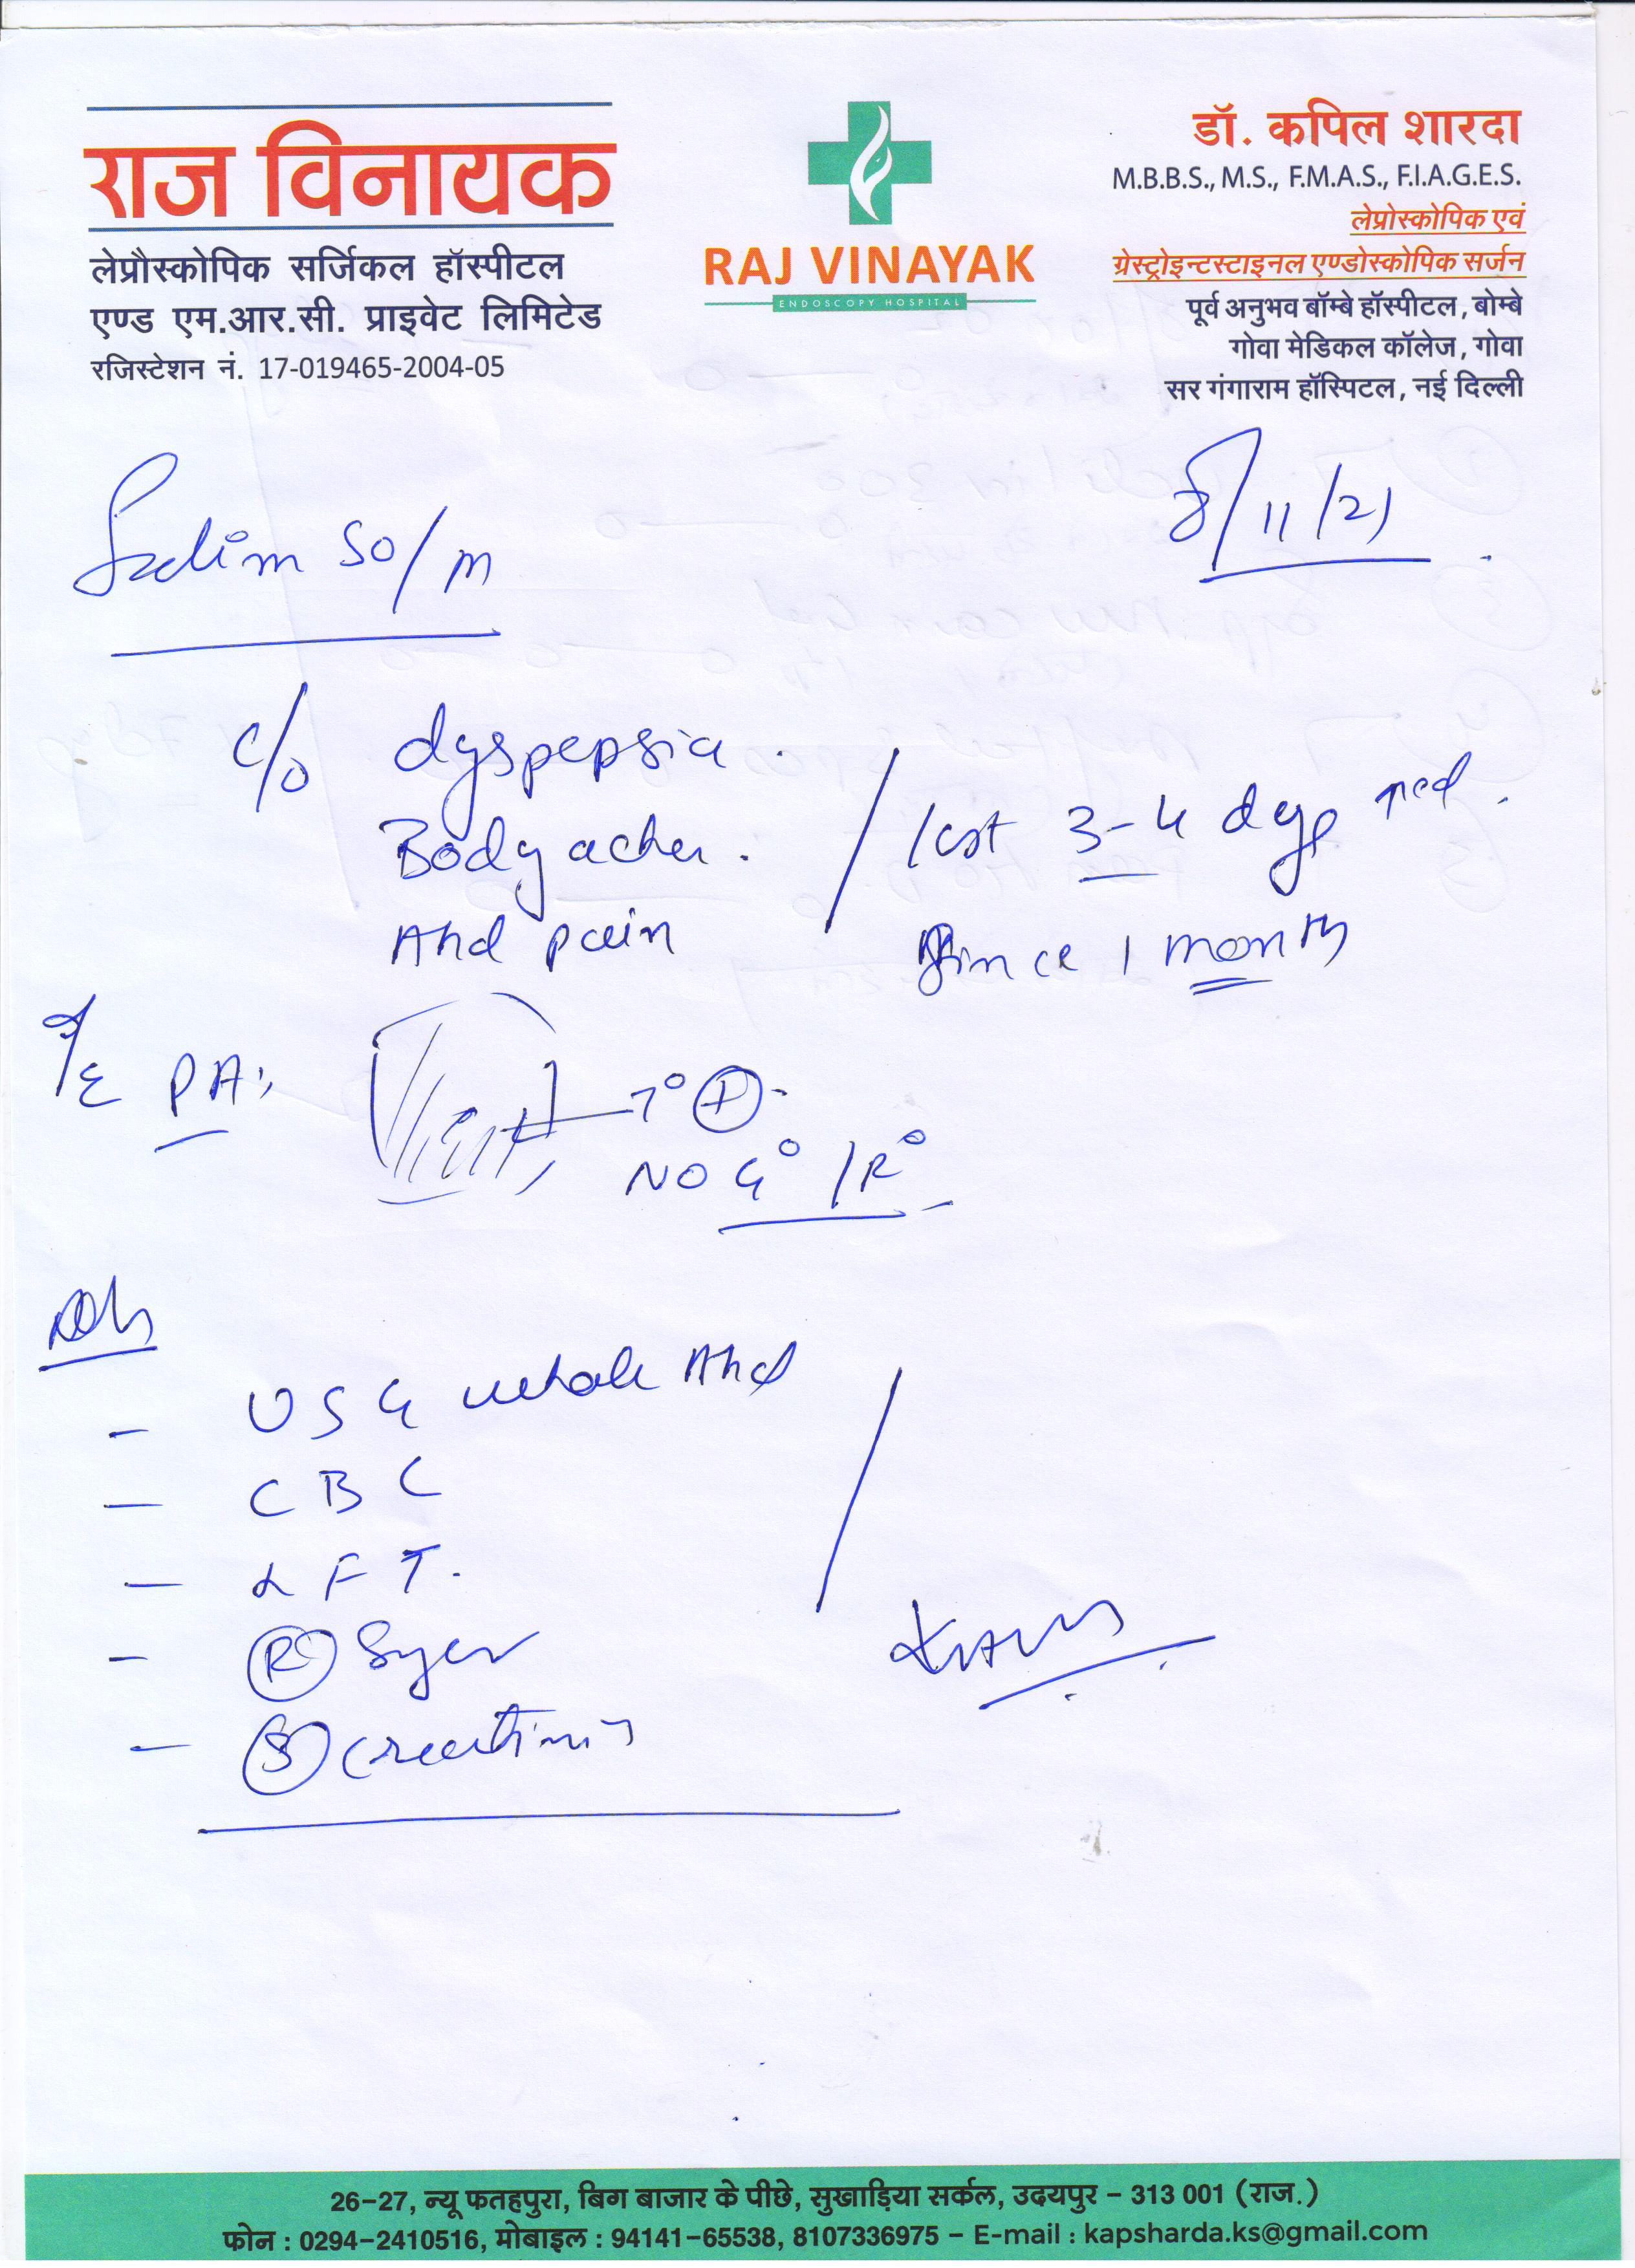 राज विनायक
लेप्रौस्कोपिक सर्जिकल हॉस्पीटल
एण्ड एम.आर.सी. प्राइवेट लिमिटेड
रजिस्टेशन नं. 17-019465-2004-05
RAJ VINAYAK
ENDOSCOPY HOSPITAL
डॉ. कपिल शारदा
M.B.B.S., M.S., F.M.A.S., F.I.A.G.E.S.
लेप्रोस्कोपिक एवं
ग्रेस्ट्रोइन्टस्टाइनल एण्डोस्कोपिक सर्जन
पूर्व अनुभव बॉम्बे हॉस्पीटल, बोम्बे
गोवा मेडिकल कॉलेज, गोवा
सर गंगाराम हॉस्पिटल, नई दिल्ली
50/m
8/11/21
c/o dyspepsia.
Bodyaches.
Abd pain
/ last 3-4 days
Since 1 month
O/E PA:
T° +
NO G° /R°
- USG whole Abd
- CBC
- LFT.
- R Sugar
- S creatinine
26-27, न्यू फतहपुरा, बिग बाजार के पीछे, सुखाड़िया सर्कल, उदयपुर - 313 001 (राज.)
फोन : 0294-2410516, मोबाइल : 94141-65538, 8107336975 - E-mail : kapsharda.ks@gmail.com